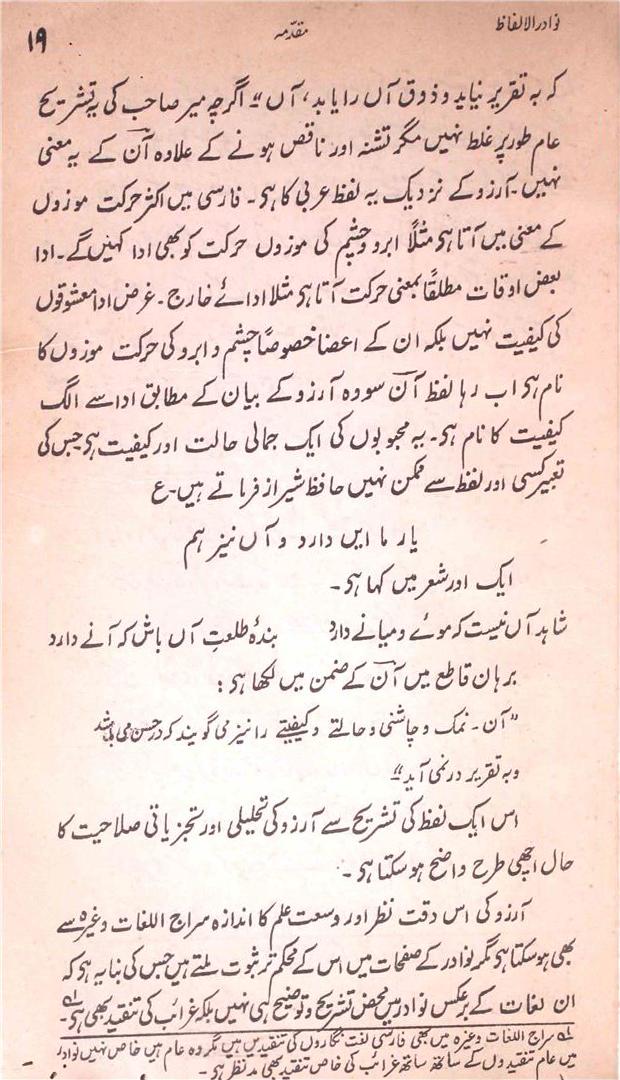 نوادر الالفاظ
مقدّمہ
۱۹
کہ بہ تقریر نیاید و ذوق آں را یابد، آں" اگرچہ میر صاحب کی یہ تشریح
عام طور پر غلط نہیں مگر تشنہ اور ناقص ہونے کے علاوہ آن کے یہ معنی
نہیں۔ آرزو کے نزدیک یہ لفظ عربی کا ہی۔ فارسی میں اکثر حرکت موزوں
کے معنی میں آتا ہی مثلاً ابرو و چشم کی موزوں حرکت کو بھی ادا کہیں گے۔ ادا
بعض اوقات مطلقاً بمعنی حرکت آتا ہی مثلا ادائے خارج۔ غرض ادا معشوقوں
کی کیفیت نہیں بلکہ ان کے اعضا خصوصاً چشم و ابرو کی حرکت موزوں کا
نام ہی اب رہا لفظ آن سو وہ آرزو کے بیان کے مطابق ادا سے الگ
کیفیت کا نام ہی۔ یہ محبوبوں کی ایک جمالی حالت اور کیفیت ہی جس کی
تعبیر کسی اور لفظ سے ممکن نہیں حافظ شیراز فرماتے ہیں۔ ع
یار ما ایں دارد و آں نیز ہم
ایک اور شعر میں کہا ہی۔
شاہد آں نیست کہ موئے و میانے دارد بندۂ طلعتِ آں باش کہ آنے دارد
برہان قاطع میں آن کے ضمن میں لکھا ہی:
"آن۔ نمک و چاشنی و حالتے و کیفیتے را نیز می گویند کہ در حسن می باشد
و بہ تقریر در نمی آید"
اس ایک لفظ کی تشریح سے آرزو کی تحلیلی اور تجزیاتی صلاحیت کا
حال اچھی طرح واضح ہو سکتا ہی۔
آرزو کی اس دقت نظر اور وسعت علم کا اندازہ سراج اللغات وغیرہ سے
بھی ہو سکتا ہی مگر نوادر کے صفحات میں اس کے محکم تر ثبوت ملتے ہیں جس کی بنا یہ ہی کہ
ان لغات کے برعکس نوادر میں محض تشریح و توضیح ہی نہیں بلکہ غرائب کی تنقید بھی ہی۔ ۱؎
۱؎ سراج اللغات وغیرہ میں بھی فارسی لغت نگاروں کی تنقیدیں ہیں مگر وہ عام ہیں خاص نہیں نوادر
میں عام تنقیدوں کے ساتھ ساتھ غرائب کی خاص تنقید بھی مد نظر ہی۔